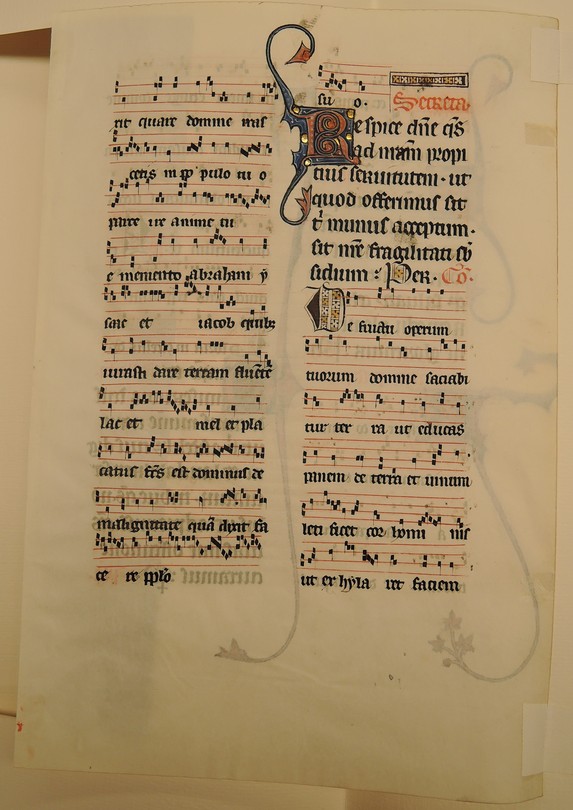 rit quare domine iras
ceris in pp̄ pulo tu o
parce ire anime tu
e memento abraham ẏ
saac et iacob quib;
iurasti dare terram fluētē
lac et mel et pla
catus ē est dominus de
malignitate quā dixit fa
ce re pplo
su o.
Secreta
Respice dn̄e q̄s
ad mr̄am propi
cius seruitutem. ut
quod offerimus sit
t munus acceptum.
sit nr̄e fragilitati sb
sidium : Per. Cō.
De fructu operum
tuorum domine saciabi
tur ter ra ut educas
panem de terra et uinum
leti ficet cor homi nis
ut ex hyla ret faciem